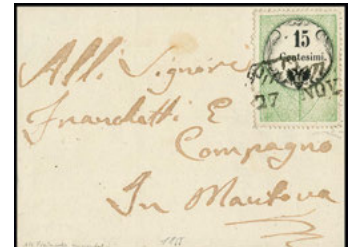 15
Centesimi.
27 NOV.
Alli Signori
Franchetti E
Compagno
In Mantova